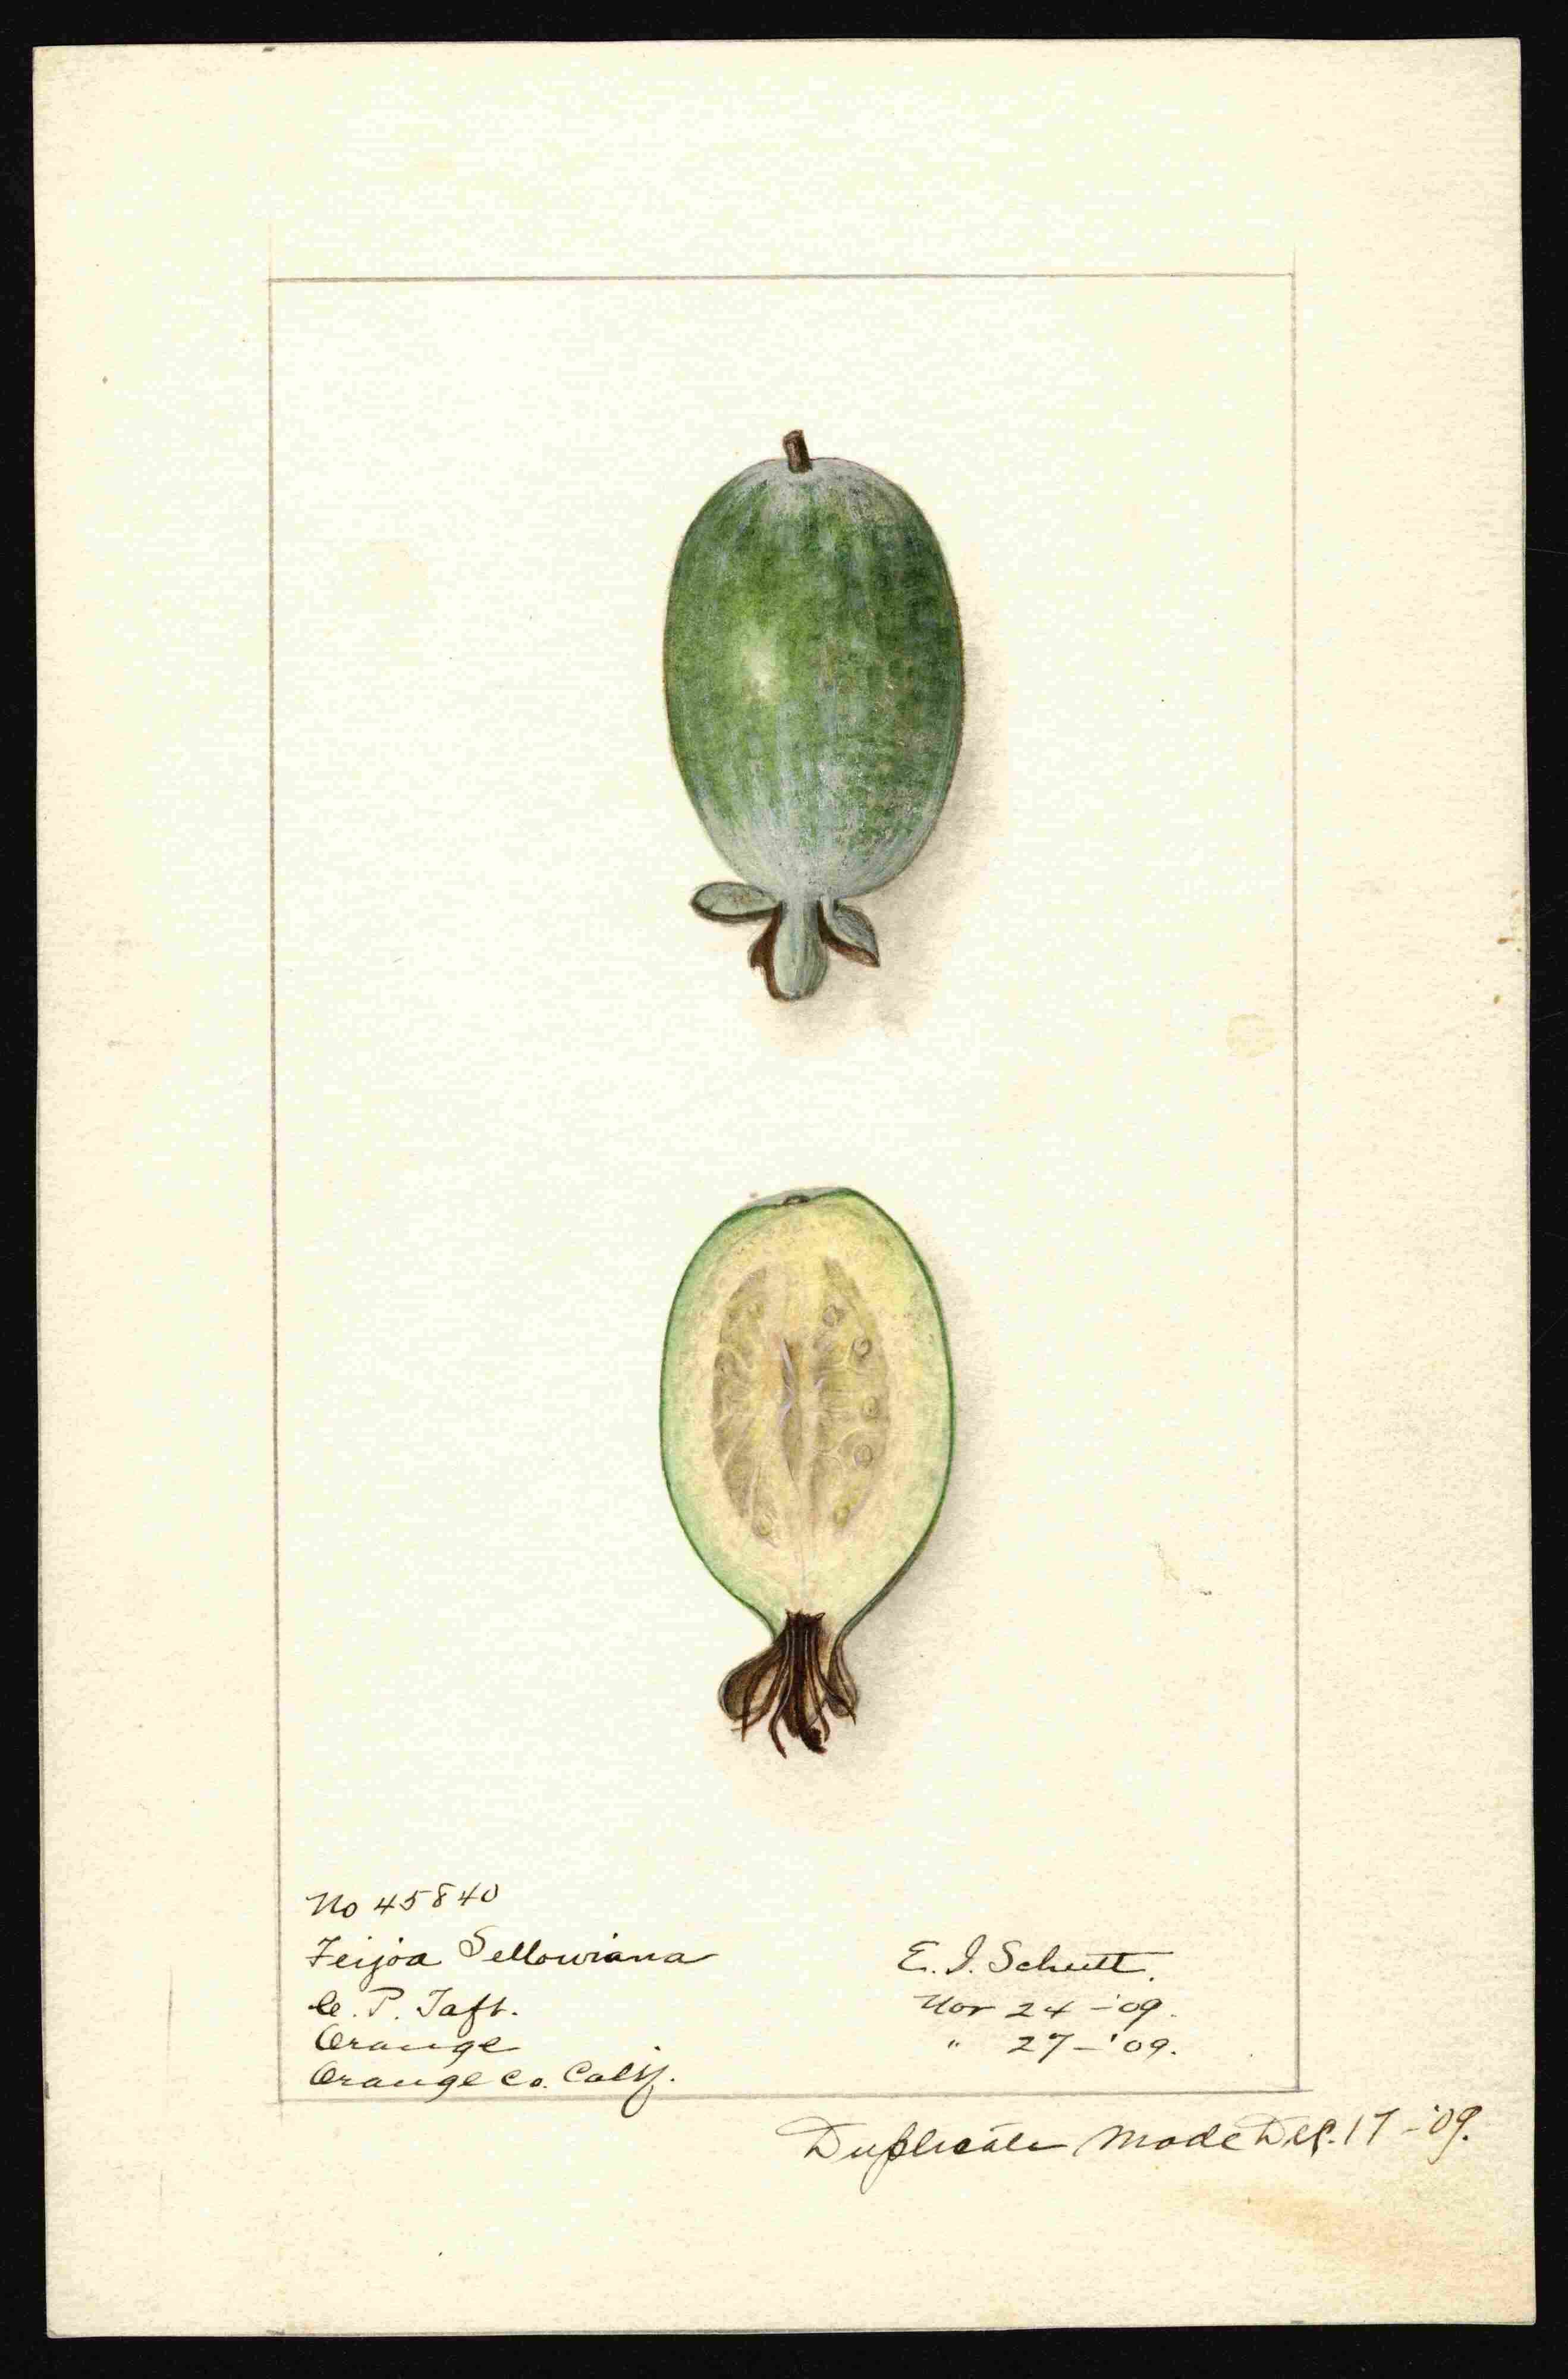 No 45840
Feijoa Sellowiana
C. P. Taft.
Orange
Orange Co. Calif.
E. I. Schutt.
Nov 24 - '09.
" 27 - '09.
Duplicate Made Dec. 17 - '09.